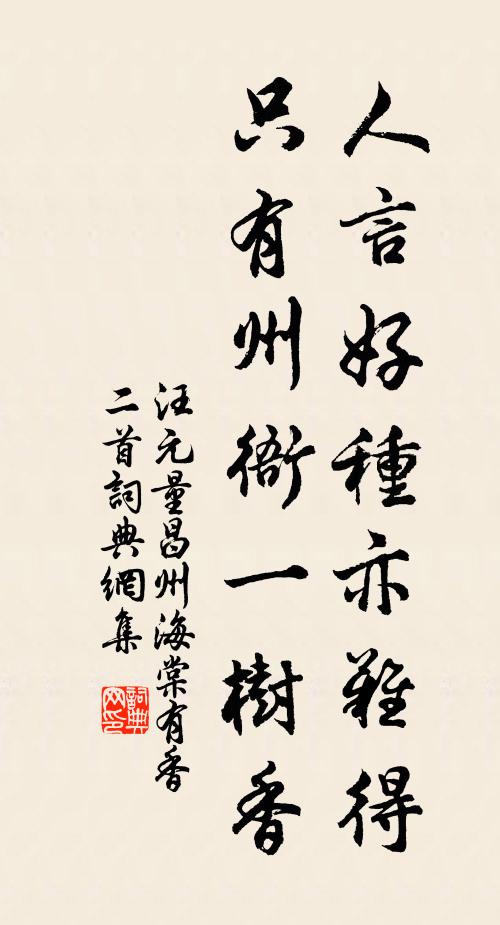 人言好種亦難得
只有州衙一樹香
汪元量昌州海棠有香
二首詞典網集
詞典
网印